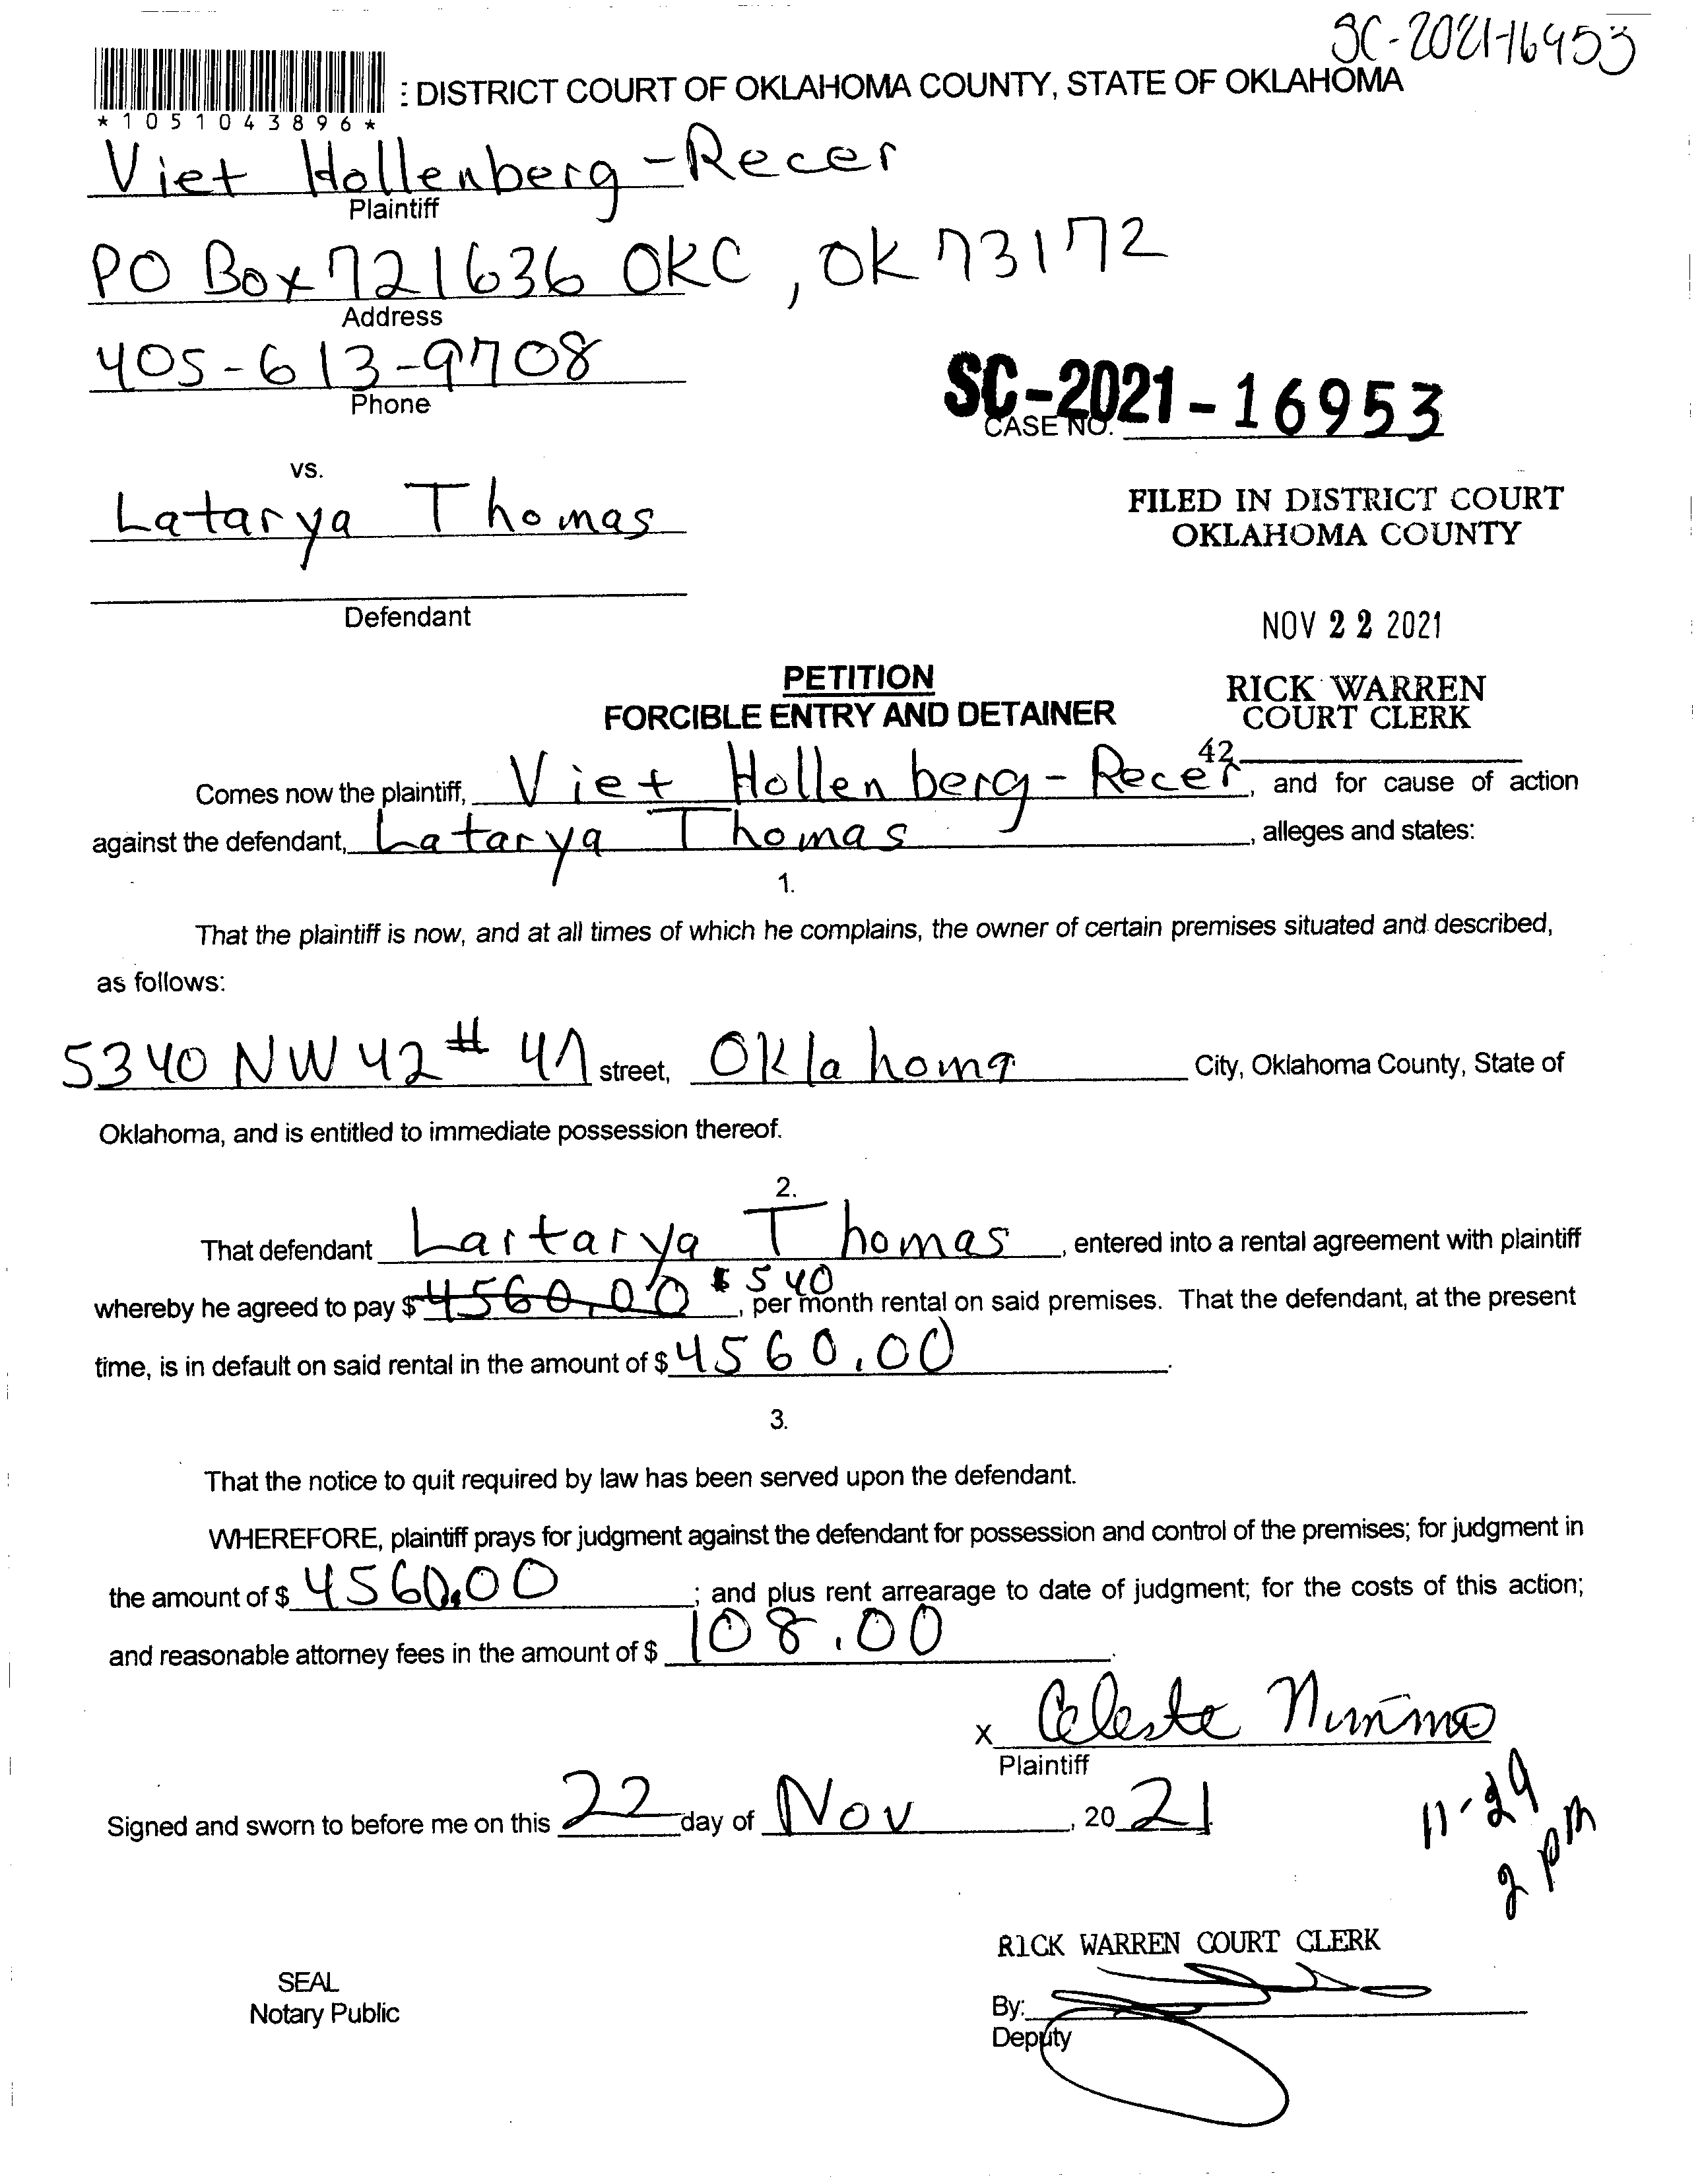 SC-2021-16953
: DISTRICT COURT OF OKLAHOMA COUNTY, STATE OF OKLAHOMA
*1051043896*
Viet Hollenberg-Recer
Plaintiff
PO Box 721636 OKC, OK 73172
Address
405-613-9708
Phone
SC-2021-16953
CASE NO.
vs.
Latarya Thomas
Defendant
FILED IN DISTRICT COURT
OKLAHOMA COUNTY
NOV 22 2021
RICK WARREN
COURT CLERK
42
PETITION
FORCIBLE ENTRY AND DETAINER
Comes now the plaintiff, Viet Hollenberg-Recer, and for cause of action
against the defendant, Latarya Thomas, alleges and states:
1.
That the plaintiff is now, and at all times of which he complains, the owner of certain premises situated and described,
as follows:
5340 NW 42 # 47 street, Oklahoma City, Oklahoma County, State of
Oklahoma, and is entitled to immediate possession thereof.
2.
That defendant Lartarya Thomas, entered into a rental agreement with plaintiff
whereby he agreed to pay $ 4560.00 $540, per month rental on said premises. That the defendant, at the present
time, is in default on said rental in the amount of $ 4560.00.
3.
That the notice to quit required by law has been served upon the defendant.
WHEREFORE, plaintiff prays for judgment against the defendant for possession and control of the premises; for judgment in
the amount of $ 4560.00; and plus rent arrearage to date of judgment; for the costs of this action;
and reasonable attorney fees in the amount of $ 108.00.
X Celeste Nimmo
Plaintiff
Signed and sworn to before me on this 22 day of Nov, 20 21
11-29
2 pm
RICK WARREN COURT CLERK
SEAL
Notary Public
By:
Deputy